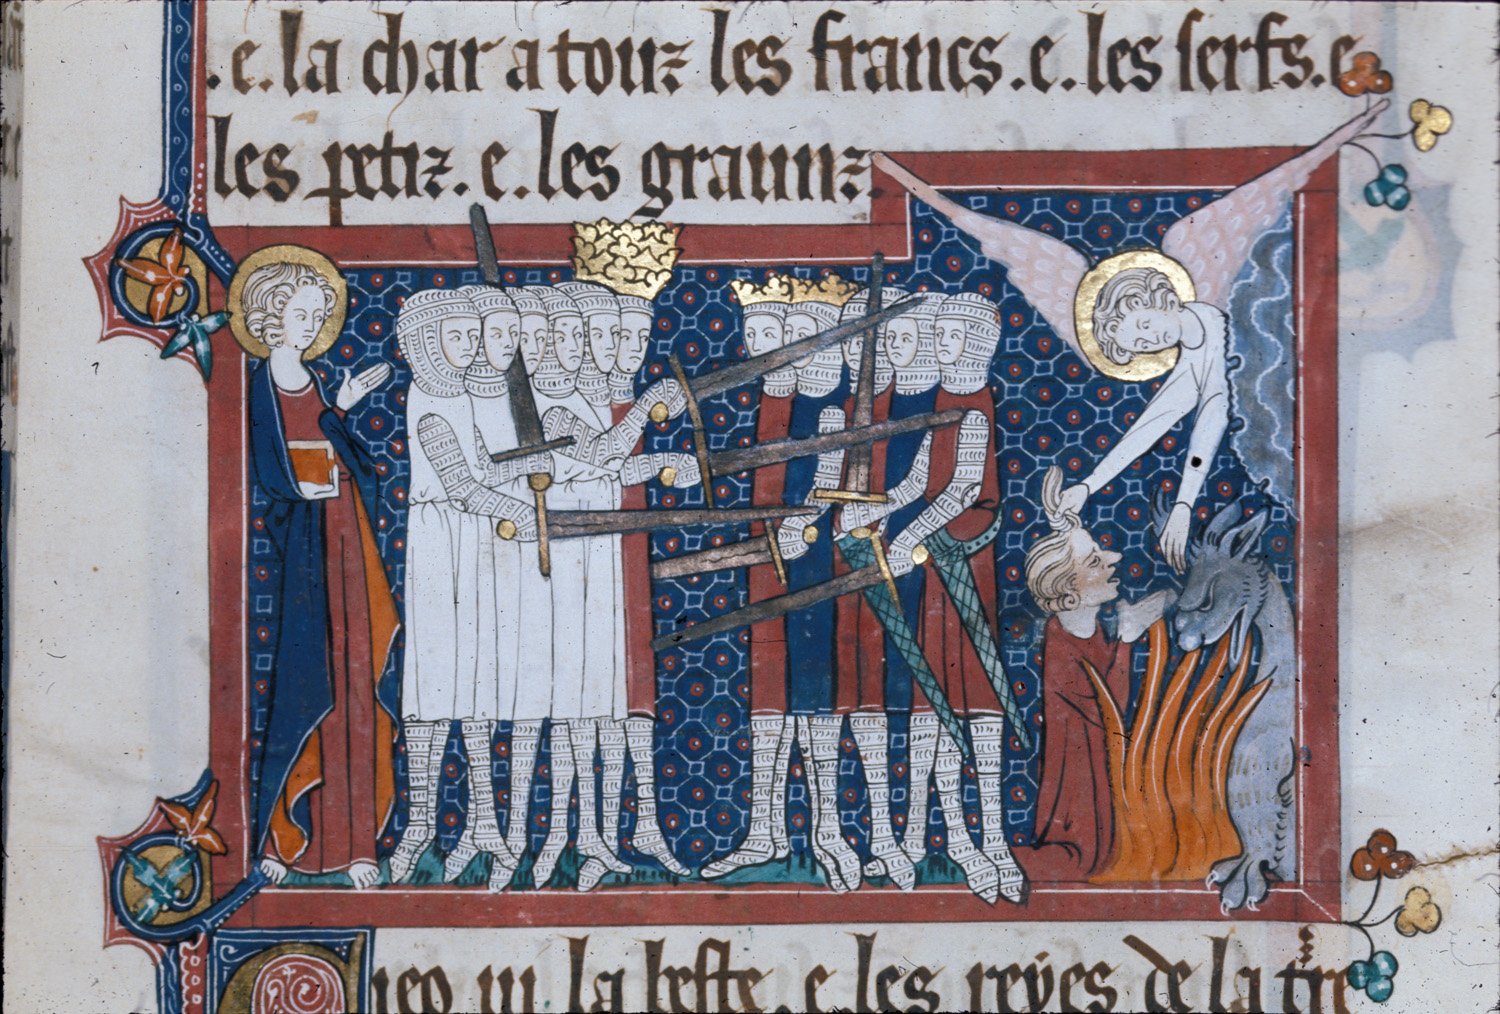 .e. la char a touz les francs .e. les serfs. e
les petiz. e. les graunz.
ieo ui la beste. e les reyes de la tre